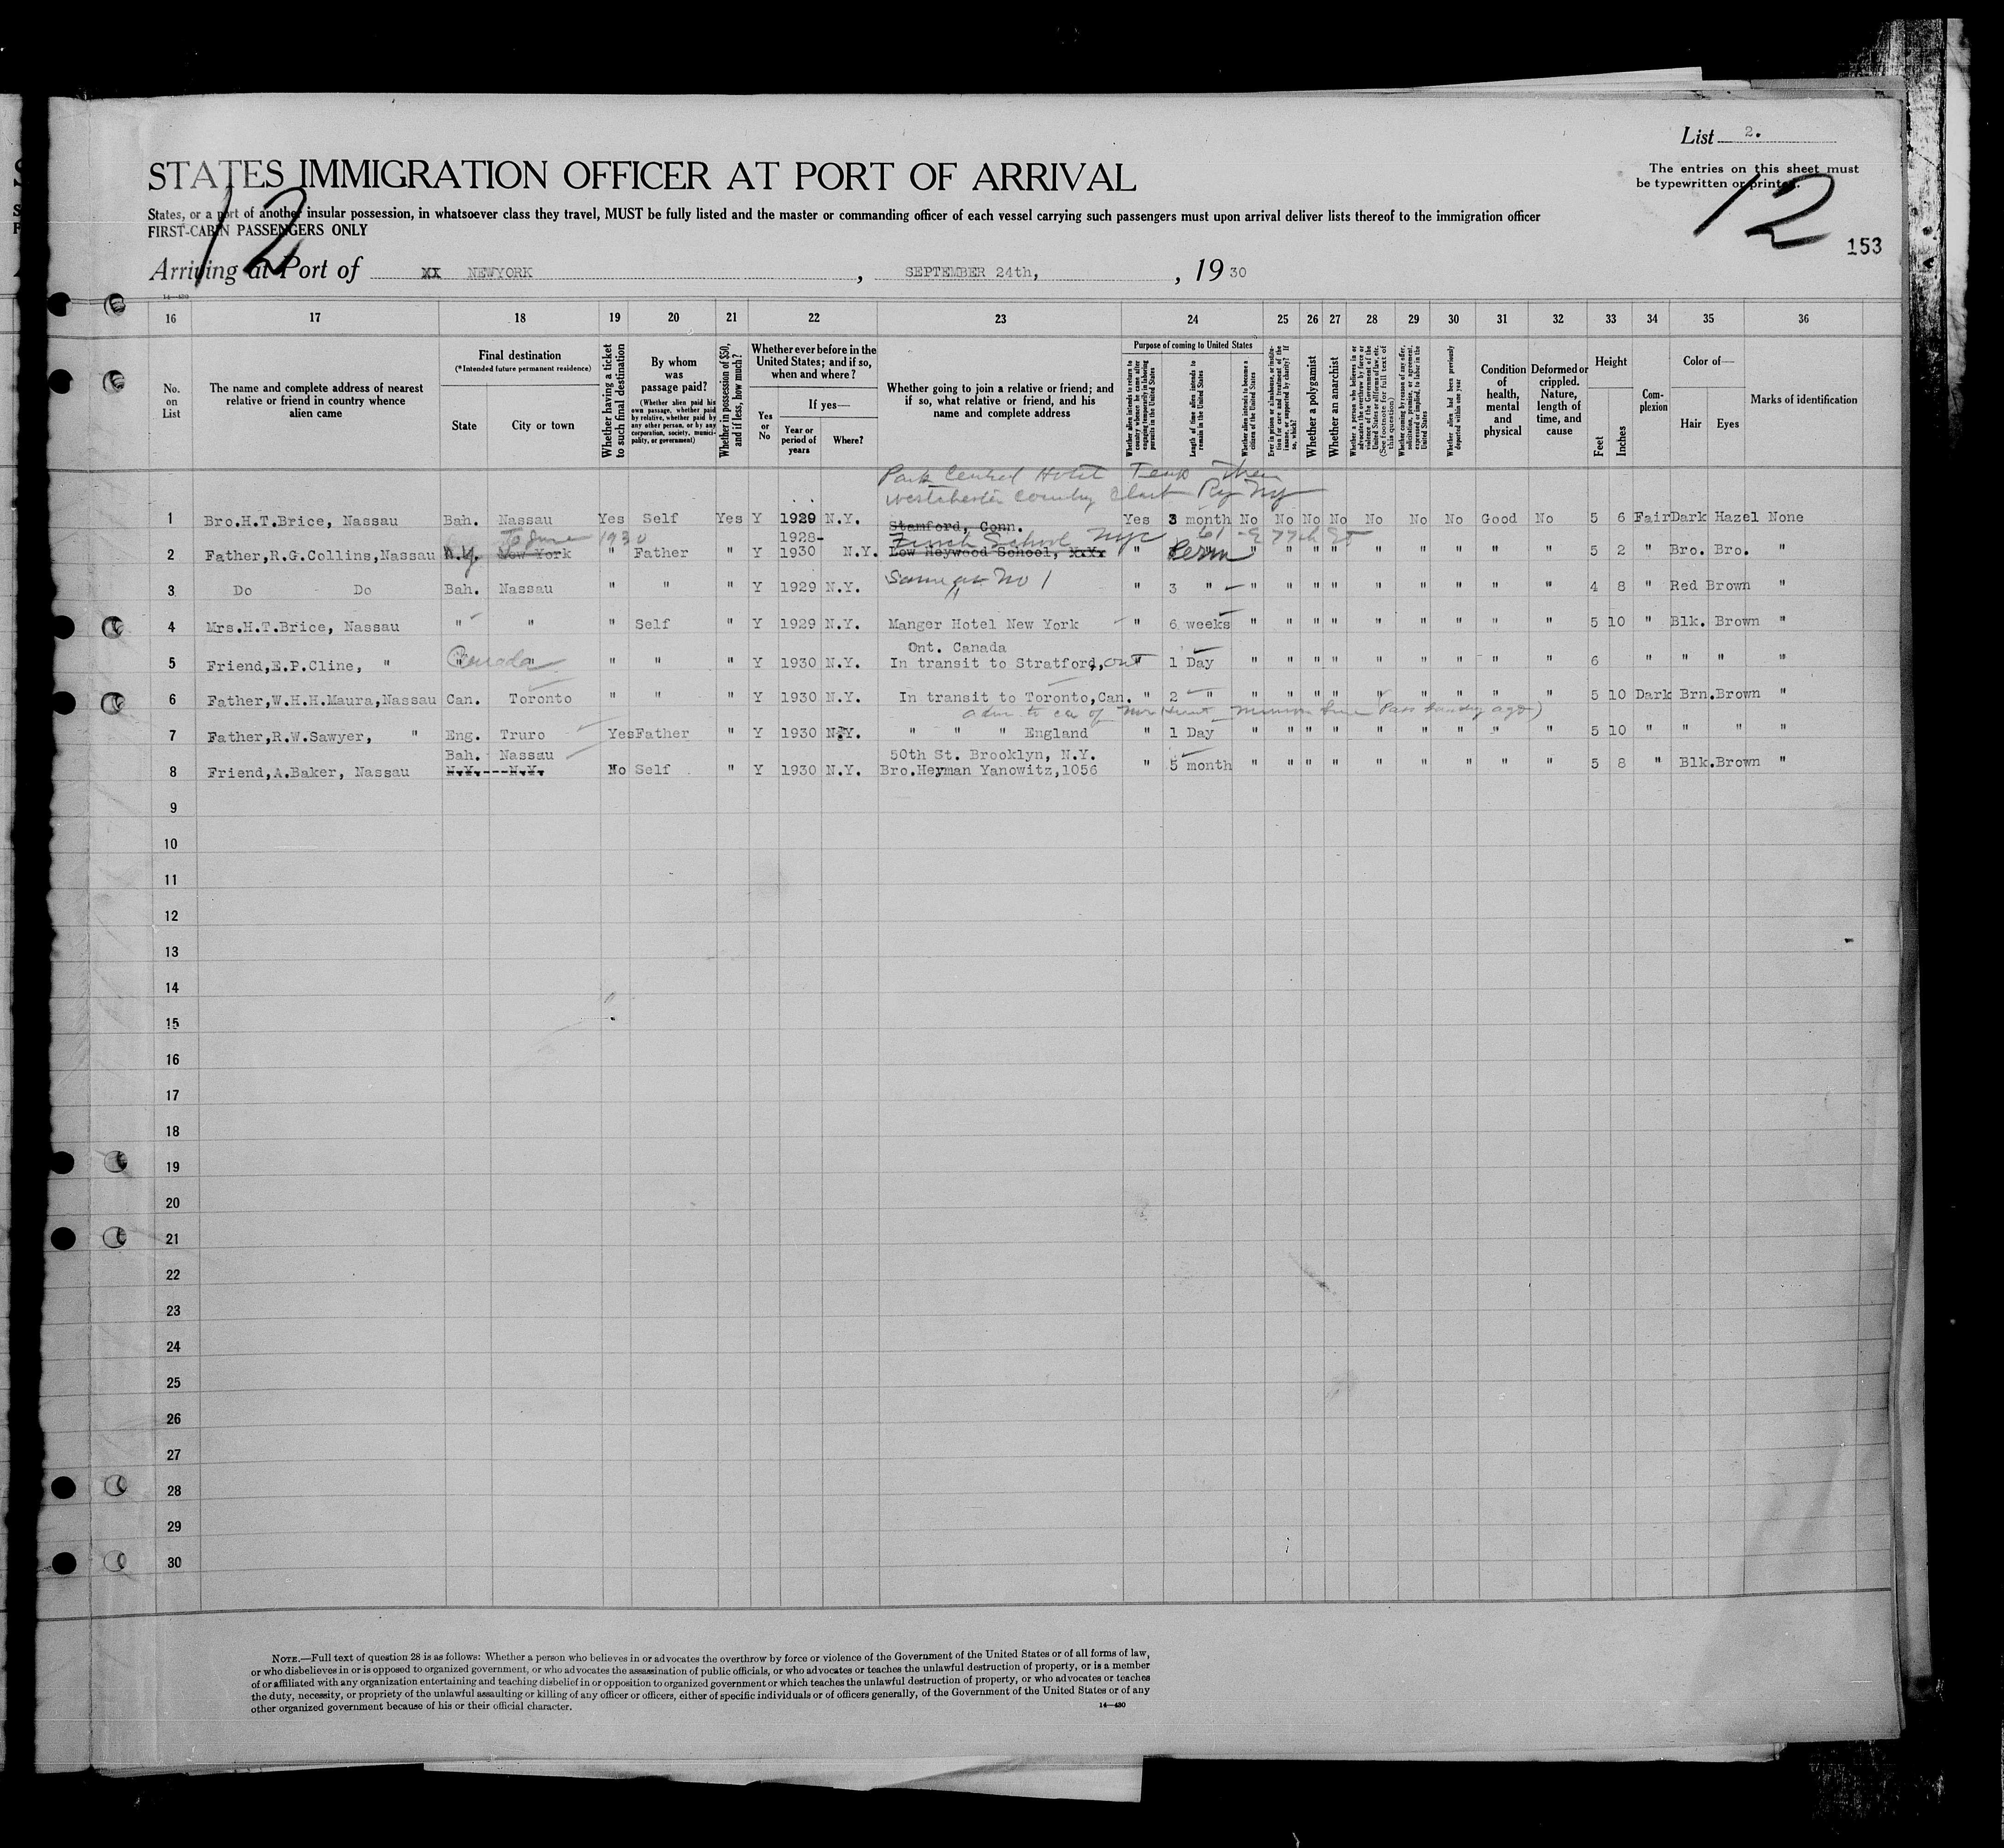 List 2.
STATES IMMIGRATION OFFICER AT PORT OF ARRIVAL
The entries on this sheet must
be typewritten or printed.
12
12
States, or a port of another insular possession, in whatsoever class they travel, MUST be fully listed and the master or commanding officer of each vessel carrying such passengers must upon arrival deliver lists thereof to the immigration officer
FIRST-CABIN PASSENGERS ONLY
153
Arriving at Port of XX NEWYORK, SEPTEMBER 24th, 1930
14—430
16 17 18 19 20 21 22 23 24 25 26 27 28 29 30 31 32 33 34 35 36
No. on List
The name and complete address of nearest relative or friend in country whence alien came
Final destination
(*Intended future permanent residence)
State
City or town
Whether having a ticket to such final destination
By whom was passage paid?
(Whether alien paid his own passage, whether paid by relative, whether paid by any other person, or by any corporation, society, municipality, or government)
Whether in possession of $50, and if less, how much?
Whether ever before in the United States; and if so, when and where?
Yes or No
If yes—
Year or period of years
Where?
Whether going to join a relative or friend; and if so, what relative or friend, and his name and complete address
Purpose of coming to United States
Whether alien intends to return to country whence he came after engaging temporarily in laboring pursuits in the United States
Length of time alien intends to remain in the United States
Whether alien intends to become a citizen of the United States
Ever in prison or almshouse, or institution for care and treatment of the insane, or supported by charity? If so, which?
Whether a polygamist
Whether an anarchist
Whether a person who believes in or advocates the overthrow by force or violence of the Government of the United States or all forms of law, etc. (See footnote for full text of this question)
Whether coming by reason of any offer, solicitation, promise, or agreement, expressed or implied, to labor in the United States
Whether alien had been previously deported within one year
Condition of health, mental and physical
Deformed or crippled. Nature, length of time, and cause
Height
Feet
Inches
Complexion
Color of—
Hair
Eyes
Marks of identification
Park Central Hotel Temp then
Westchester Country Club Ry NY
1 Bro.H.T.Brice, Nassau Bah. Nassau Yes Self Yes Y 1929 N.Y. Stamford, Conn. Yes 3 month No No No No No No No Good No 5 6 Fair Dark Hazel None
To June 1930 1928- Finch School NYC 61 - E 77th St
2 Father,R.G.Collins,Nassau N.Y. New York " Father " Y 1930 N.Y. Low Heywood School, XXXX " Perm " " " " " " " " " 5 2 " Bro. Bro. "
3 Do Do Bah. Nassau " " " Y 1929 N.Y. Same as No 1 " 3 " " " " " " " " " " 4 8 " Red Brown "
4 Mrs.H.T.Brice, Nassau " " " Self " Y 1929 N.Y. Manger Hotel New York " 6 weeks " " " " " " " " " 5 10 " Blk. Brown "
Ont. Canada
5 Friend,E.P.Cline, " Canada " " " " Y 1930 N.Y. In transit to Stratford, Ont " 1 Day " " " " " " " " " 6 " " " "
6 Father,W.H.H.Maura,Nassau Can. Toronto " " " Y 1930 N.Y. In transit to Toronto,Can. " 2 " " " " " " " " " " 5 10 Dark Brn. Brown "
7 Father,R.W.Sawyer, " Eng. Truro Yes Father " Y 1930 N.Y. " " " England " 1 Day " " " " " " " " " 5 10 " " " "
Bah. Nassau 50th St. Brooklyn, N.Y.
8 Friend,A.Baker, Nassau N.Y.---N.Y. No Self " Y 1930 N.Y. Bro.Heyman Yanowitz,1056 " 5 month " " " " " " " " " 5 8 " Blk.Brown "
9
10
11
12
13
14
15
16
17
18
19
20
21
22
23
24
25
26
27
28
29
30
NOTE.—Full text of question 28 is as follows: Whether a person who believes in or advocates the overthrow by force or violence of the Government of the United States or of all forms of law,
or who disbelieves in or is opposed to organized government, or who advocates the assassination of public officials, or who advocates or teaches the unlawful destruction of property, or is a member
of or affiliated with any organization entertaining and teaching disbelief in or opposition to organized government or which teaches the unlawful destruction of property, or who advocates or teaches
the duty, necessity, or propriety of the unlawful assaulting or killing of any officer or officers, either of specific individuals or of officers generally, of the Government of the United States or of any
other organized government because of his or their official character.
14—430